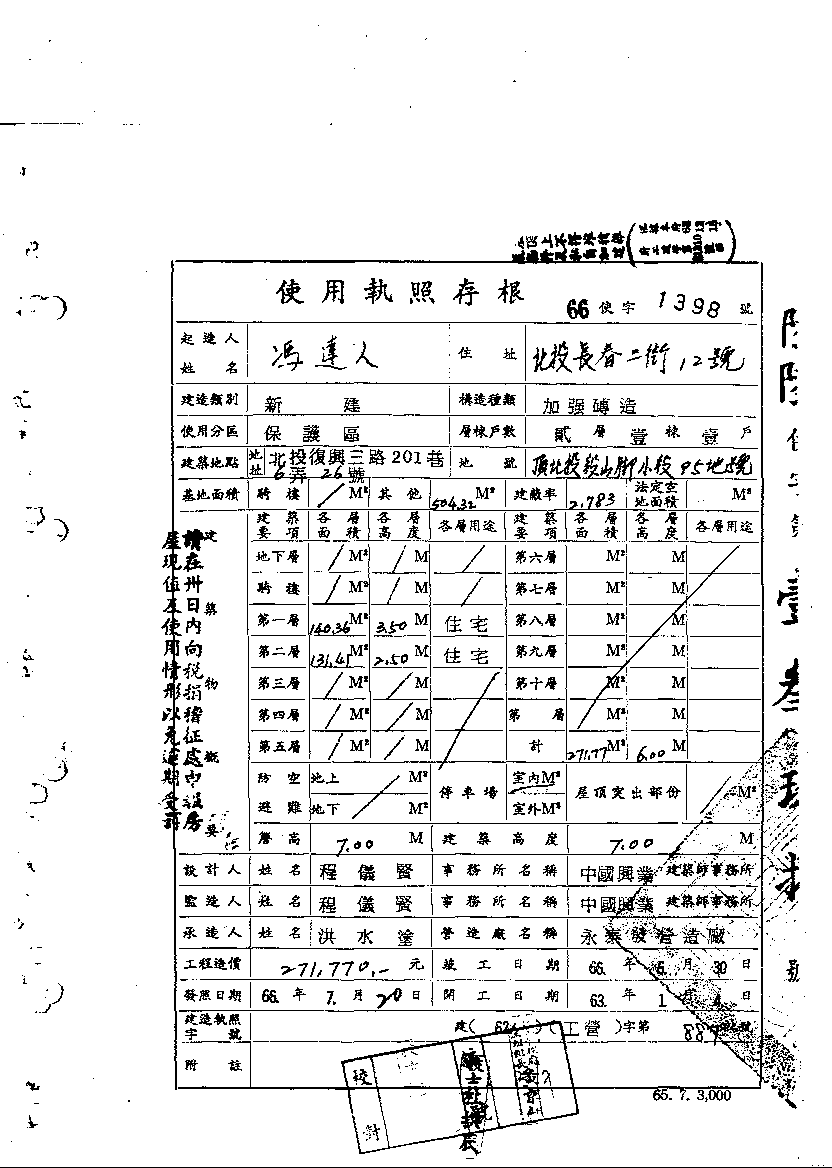 使用執照存根
66 使字 1398 號
起造人姓名 馮達人 住址 北投長春二街12號
建造類別 新建 構造種類 加强磚造
使用分區 保護區 層棟戶數 貳層壹棟壹戶
建築地點 地址 北投復興三路201巷6弄26號 地號 頂北投段山腳小段95地號
基地面積 騎樓 / M² 其他 504.32 M² 建蔽率 2.783 法定空地面積 M²
建築要項 各層面積 各層高度 各層用途 建築要項 各層面積 各層高度 各層用途
地下層 / M² / M / 第六層 M² M
騎樓 / M² / M / 第七層 M² M
第一層 140.36 M² 3.50 M 住宅 第八層 M² M
第二層 131.41 M² 2.50 M 住宅 第九層 M² M
第三層 / M² / M 第十層 M² M
第四層 / M² / M 第 層 M² M
第五層 / M² / M 計 271.77 M² 6.00 M
防空避難 地上 M² 地下 M² 停車場 室內M² 室外M² 屋頂突出部份 / M²
簷高 7.00 M 建築高度 7.00 M
建築物概要
設計人 姓名 程儀賢 事務所名稱 中國興業建築師事務所
監造人 姓名 程儀賢 事務所名稱 中國興業建築師事務所
承造人 姓名 洪水塗 營造廠名稱 永泰發營造廠
工程造價 271,770.- 元 竣工日期 66.年 6.月 30日
發照日期 66.年 7.月 20日 開工日期 63.年 1月 4日
建造執照字號 建( ) (工營) 字第 號
附註
65. 7. 3,000
請在卅日內向稅捐稽征處申報房
屋現值及使用情形以免逾期受罰
校對